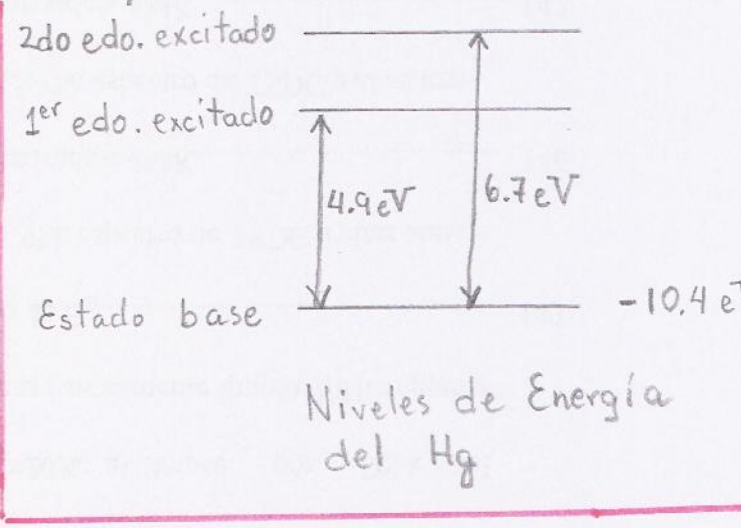 2do edo. excitado
1er edo. excitado
4.9eV
6.7eV
Estado base
-10.4 e
Niveles de Energía
del Hg